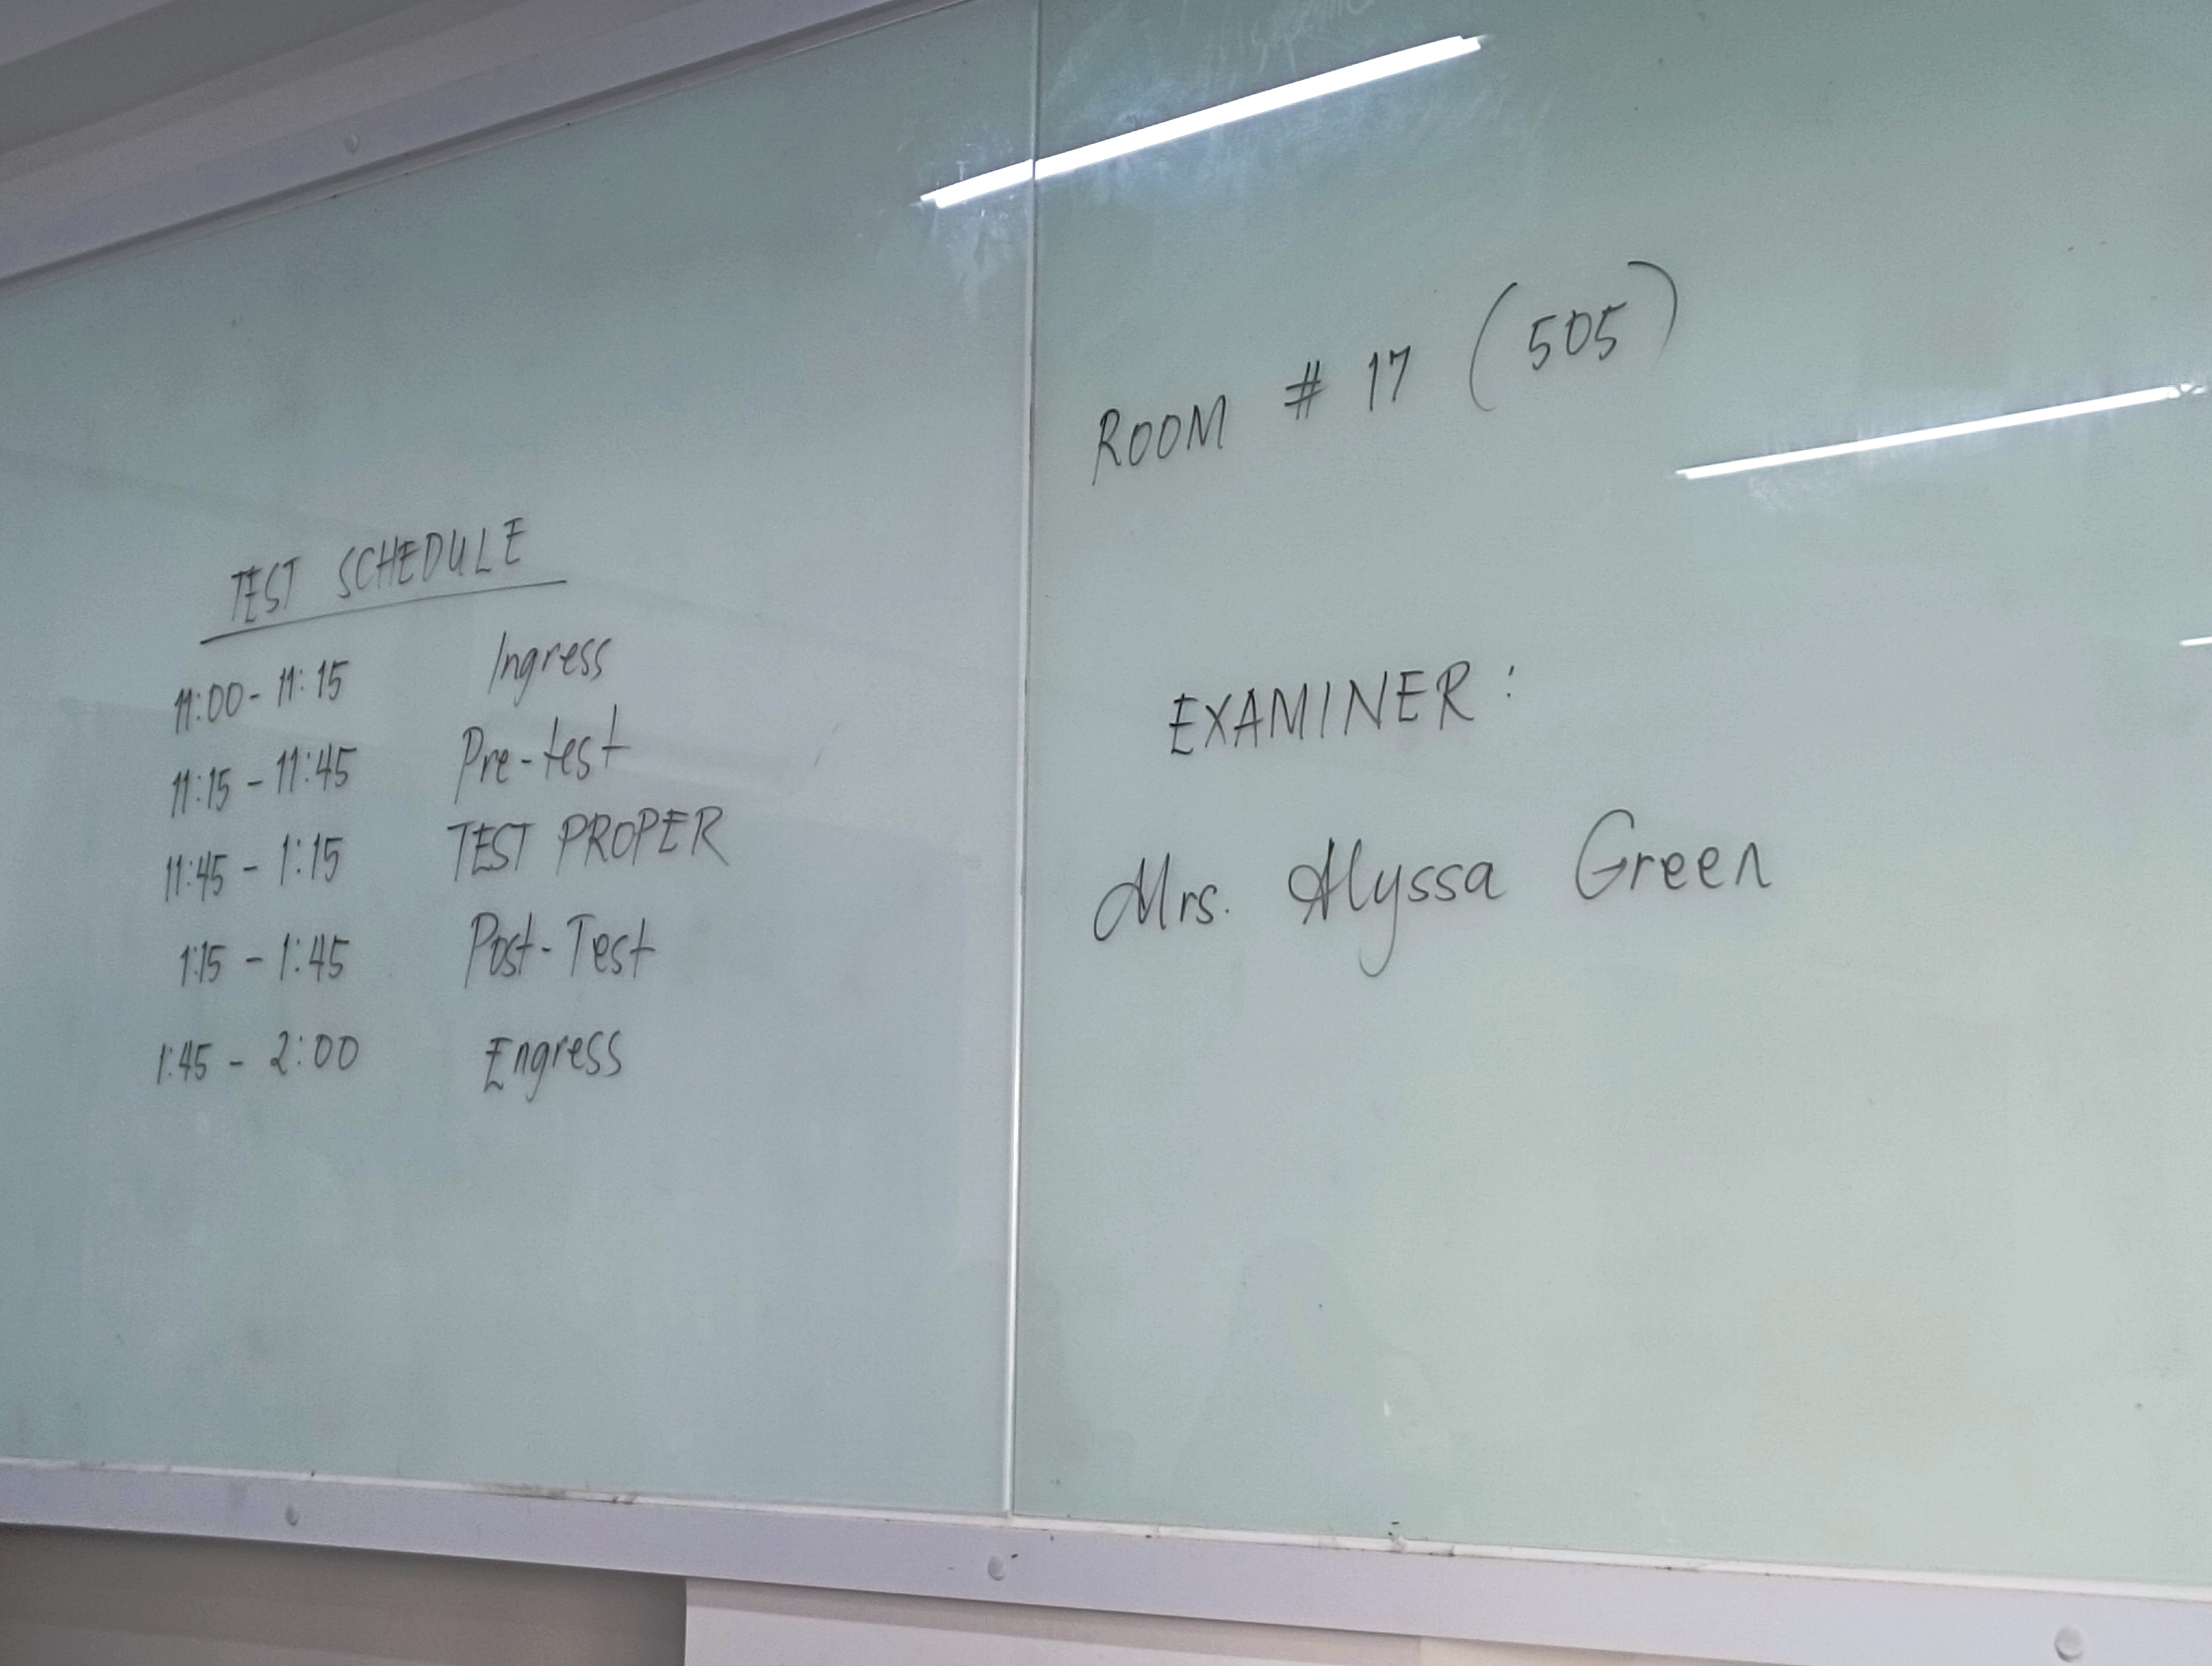 TEST SCHEDULE
11:00 - 11:15 Ingress
11:15 - 11:45 Pre-test
11:45 - 1:15 TEST PROPER
1:15 - 1:45 Post-Test
1:45 - 2:00 Engress
ROOM # 17 (505)
EXAMINER:
Mrs. Alyssa Green